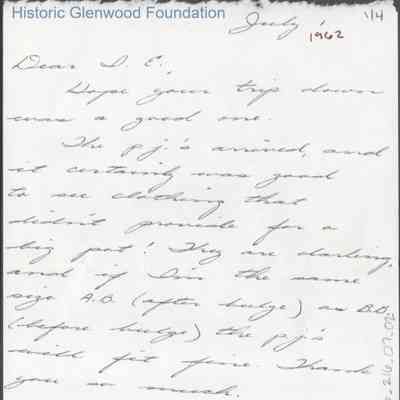 Historic Glenwood Foundation
July
1962
1/4
Dear I. E.,
Hope your trip down
was a good one.
The p.j.'s arrived, and
it certainly was good
to see clothing that
didn't provide for a
big pot! They are darling,
and if I'm the same
size A.B. (after bulge) as B.B.
(before bulge) the p.j.'s
will fit fine. Thank
you so much.
26.07.02